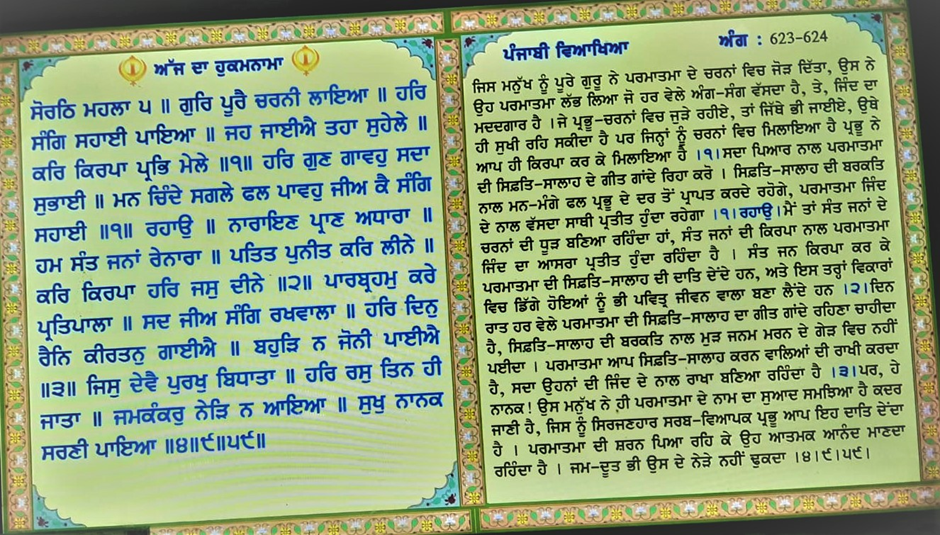 ਅੱਜ ਦਾ ਹੁਕਮਨਾਮਾ
ਸੋਰਠਿ ਮਹਲਾ ੫ ॥ ਗੁਰਿ ਪੂਰੈ ਚਰਨੀ ਲਾਇਆ ॥ ਹਰਿ
ਸੰਗਿ ਸਹਾਈ ਪਾਇਆ ॥ ਜਹ ਜਾਈਐ ਤਹਾ ਸੁਹੇਲੇ ॥
ਕਰਿ ਕਿਰਪਾ ਪ੍ਰਭਿ ਮੇਲੇ ॥੧॥ ਹਰਿ ਗੁਣ ਗਾਵਹੁ ਸਦਾ
ਸੁਭਾਈ ॥ ਮਨ ਚਿੰਦੇ ਸਗਲੇ ਫਲ ਪਾਵਹੁ ਜੀਅ ਕੈ ਸੰਗਿ
ਸਹਾਈ ॥੧॥ ਰਹਾਉ ॥ ਨਾਰਾਇਣ ਪ੍ਰਾਣ ਅਧਾਰਾ ॥
ਹਮ ਸੰਤ ਜਨਾਂ ਰੇਨਾਰਾ ॥ ਪਤਿਤ ਪੁਨੀਤ ਕਰਿ ਲੀਨੇ ॥
ਕਰਿ ਕਿਰਪਾ ਹਰਿ ਜਸੁ ਦੀਨੇ ॥੨॥ ਪਾਰਬ੍ਰਹਮੁ ਕਰੇ
ਪ੍ਰਤਿਪਾਲਾ ॥ ਸਦ ਜੀਅ ਸੰਗਿ ਰਖਵਾਲਾ ॥ ਹਰਿ ਦਿਨੁ
ਰੈਨਿ ਕੀਰਤਨੁ ਗਾਈਐ ॥ ਬਹੁੜਿ ਨ ਜੋਨੀ ਪਾਈਐ
॥੩॥ ਜਿਸੁ ਦੇਵੈ ਪੁਰਖੁ ਬਿਧਾਤਾ ॥ ਹਰਿ ਰਸੁ ਤਿਨ ਹੀ
ਜਾਤਾ ॥ ਜਮਕੰਕਰੁ ਨੇੜਿ ਨ ਆਇਆ ॥ ਸੁਖੁ ਨਾਨਕ
ਸਰਣੀ ਪਾਇਆ ॥੪॥੯॥੫੯॥
ਪੰਜਾਬੀ ਵਿਆਖਿਆ ਅੰਗ : 623-624
ਜਿਸ ਮਨੁੱਖ ਨੂੰ ਪੂਰੇ ਗੁਰੂ ਨੇ ਪਰਮਾਤਮਾ ਦੇ ਚਰਨਾਂ ਵਿਚ ਜੋੜ ਦਿੱਤਾ, ਉਸ ਨੇ
ਉਹ ਪਰਮਾਤਮਾ ਲੱਭ ਲਿਆ ਜੋ ਹਰ ਵੇਲੇ ਅੰਗ-ਸੰਗ ਵੱਸਦਾ ਹੈ, ਤੇ, ਜਿੰਦ ਦਾ
ਮਦਦਗਾਰ ਹੈ ।ਜੇ ਪ੍ਰਭੂ-ਚਰਨਾਂ ਵਿਚ ਜੁੜੇ ਰਹੀਏ, ਤਾਂ ਜਿੱਥੇ ਭੀ ਜਾਈਏ, ਉਥੇ
ਹੀ ਸੁਖੀ ਰਹਿ ਸਕੀਦਾ ਹੈ ਪਰ ਜਿਨ੍ਹਾਂ ਨੂੰ ਚਰਨਾਂ ਵਿਚ ਮਿਲਾਇਆ ਹੈ ਪ੍ਰਭੂ ਨੇ
ਆਪ ਹੀ ਕਿਰਪਾ ਕਰ ਕੇ ਮਿਲਾਇਆ ਹੈ ।੧।ਸਦਾ ਪਿਆਰ ਨਾਲ ਪਰਮਾਤਮਾ
ਦੀ ਸਿਫ਼ਤਿ-ਸਾਲਾਹ ਦੇ ਗੀਤ ਗਾਂਦੇ ਰਿਹਾ ਕਰੋ । ਸਿਫ਼ਤਿ-ਸਾਲਾਹ ਦੀ ਬਰਕਤਿ
ਨਾਲ ਮਨ-ਮੰਗੇ ਫਲ ਪ੍ਰਭੂ ਦੇ ਦਰ ਤੋਂ ਪ੍ਰਾਪਤ ਕਰਦੇ ਰਹੋਗੇ, ਪਰਮਾਤਮਾ ਜਿੰਦ
ਦੇ ਨਾਲ ਵੱਸਦਾ ਸਾਥੀ ਪ੍ਰਤੀਤ ਹੁੰਦਾ ਰਹੇਗਾ ।੧।ਰਹਾਉ।ਮੈਂ ਤਾਂ ਸੰਤ ਜਨਾਂ ਦੇ
ਚਰਨਾਂ ਦੀ ਧੂੜ ਬਣਿਆ ਰਹਿੰਦਾ ਹਾਂ, ਸੰਤ ਜਨਾਂ ਦੀ ਕਿਰਪਾ ਨਾਲ ਪਰਮਾਤਮਾ
ਜਿੰਦ ਦਾ ਆਸਰਾ ਪ੍ਰਤੀਤ ਹੁੰਦਾ ਰਹਿੰਦਾ ਹੈ । ਸੰਤ ਜਨ ਕਿਰਪਾ ਕਰ ਕੇ
ਪਰਮਾਤਮਾ ਦੀ ਸਿਫ਼ਤਿ-ਸਾਲਾਹ ਦੀ ਦਾਤਿ ਦੇਂਦੇ ਹਨ, ਅਤੇ ਇਸ ਤਰ੍ਹਾਂ ਵਿਕਾਰਾਂ
ਵਿਚ ਡਿੱਗੇ ਹੋਇਆਂ ਨੂੰ ਭੀ ਪਵਿਤ੍ਰ ਜੀਵਨ ਵਾਲਾ ਬਣਾ ਲੈਂਦੇ ਹਨ ।੨।ਦਿਨ
ਰਾਤ ਹਰ ਵੇਲੇ ਪਰਮਾਤਮਾ ਦੀ ਸਿਫ਼ਤਿ-ਸਾਲਾਹ ਦਾ ਗੀਤ ਗਾਂਦੇ ਰਹਿਣਾ ਚਾਹੀਦਾ
ਹੈ, ਸਿਫ਼ਤਿ-ਸਾਲਾਹ ਦੀ ਬਰਕਤਿ ਨਾਲ ਮੁੜ ਜਨਮ ਮਰਨ ਦੇ ਗੇੜ ਵਿਚ ਨਹੀਂ
ਪਈਦਾ । ਪਰਮਾਤਮਾ ਆਪ ਸਿਫ਼ਤਿ-ਸਾਲਾਹ ਕਰਨ ਵਾਲਿਆਂ ਦੀ ਰਾਖੀ ਕਰਦਾ
ਹੈ, ਸਦਾ ਉਹਨਾਂ ਦੀ ਜਿੰਦ ਦੇ ਨਾਲ ਰਾਖਾ ਬਣਿਆ ਰਹਿੰਦਾ ਹੈ ।੩।ਪਰ, ਹੇ
ਨਾਨਕ! ਉਸ ਮਨੁੱਖ ਨੇ ਹੀ ਪਰਮਾਤਮਾ ਦੇ ਨਾਮ ਦਾ ਸੁਆਦ ਸਮਝਿਆ ਹੈ ਕਦਰ
ਜਾਣੀ ਹੈ, ਜਿਸ ਨੂੰ ਸਿਰਜਣਹਾਰ ਸਰਬ-ਵਿਆਪਕ ਪ੍ਰਭੂ ਆਪ ਇਹ ਦਾਤਿ ਦੇਂਦਾ
ਹੈ । ਪਰਮਾਤਮਾ ਦੀ ਸ਼ਰਨ ਪਿਆ ਰਹਿ ਕੇ ਉਹ ਆਤਮਕ ਆਨੰਦ ਮਾਣਦਾ
ਰਹਿੰਦਾ ਹੈ । ਜਮ-ਦੂਤ ਭੀ ਉਸ ਦੇ ਨੇੜੇ ਨਹੀਂ ਢੁਕਦਾ ।੪।੯।੫੯।